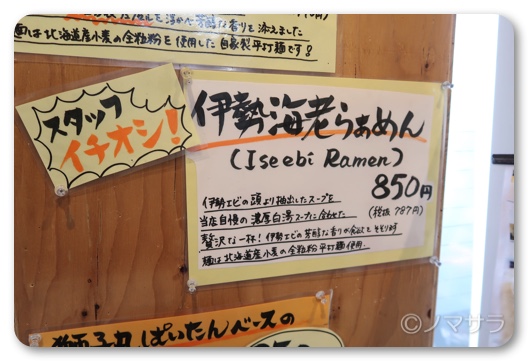 を浮かべ芳醇な香りを添えました
麺は北海道産小麦の全粒粉を使用した自家製平打麺です!
スタッフ
イチオシ!
伊勢海老らぁめん
(Iseebi Ramen)
850円
(税抜 787円)
伊勢エビの頭より抽出したスープを
当店自慢の濃厚白湯スープに合わせた
贅沢な一杯!伊勢エビの芳醇な香りが食欲をそそります
麺は北海道産小麦の全粒粉平打麺使用.
獅子丸ぱいたんベースの
©ノマサラ